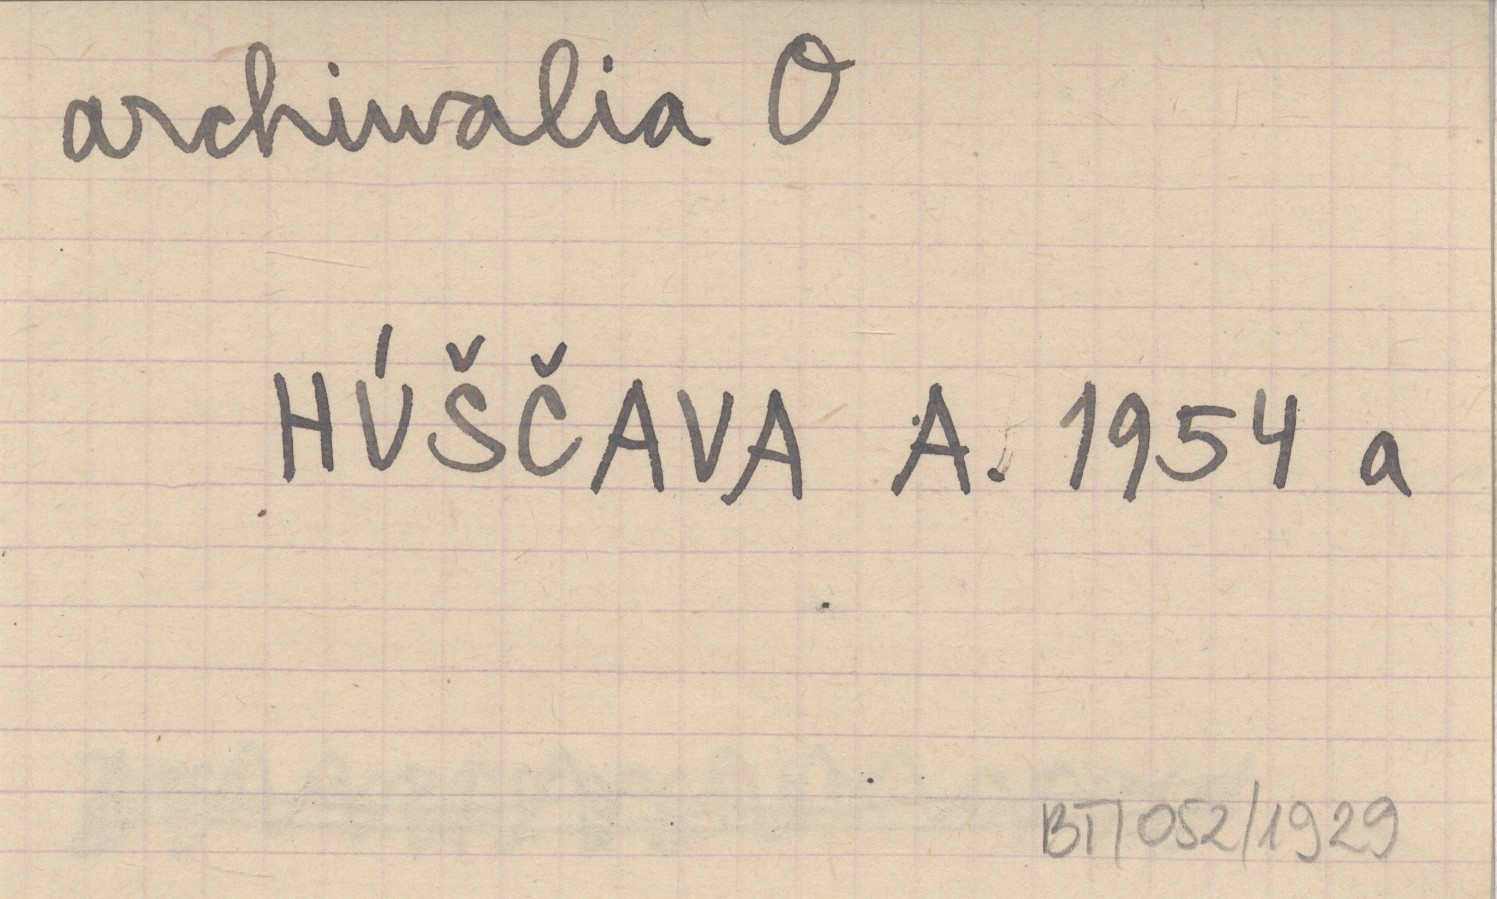 archiwalia O
HÚŠČAVA A. 1954 a
BT/052/1929